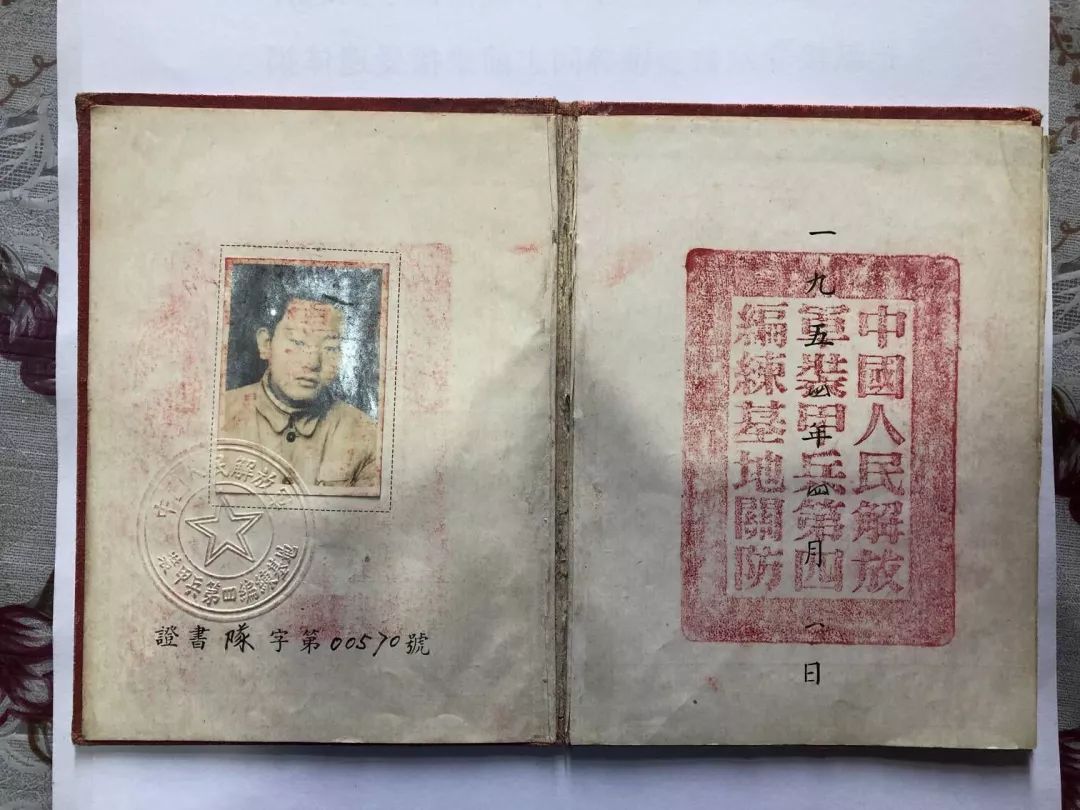 中國人民解放軍
裝甲兵第四編練基地
證書隊字第00570號
一九五四年四月 日
中國人民解放
軍裝甲兵第四
編練基地關防